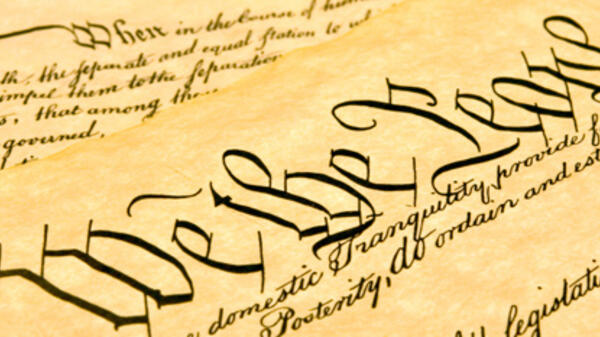 When in the Course of hum
th, the ſeparate and equal ſtation to wh
impel them to the ſeparation
s, that among these
governed,
We the Peop
domestic Tranquility, provide f
Posterity, do ordain and est
legislati